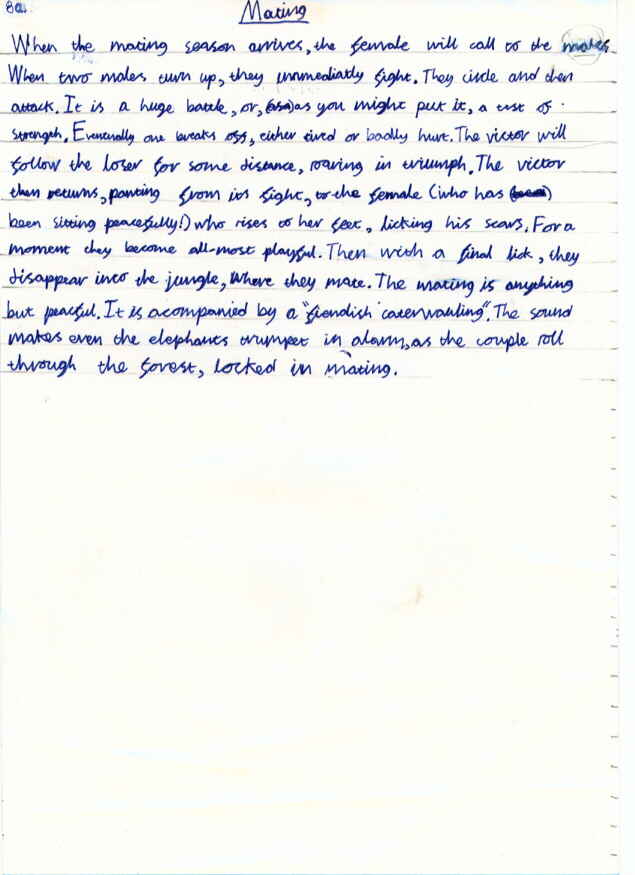 8a.
Mating
When the mating season arrives, the female will call to the males.
When two males turn up, they immediatly fight. They circle and then
attack. It is a huge battle, or, as you might put it, a test of
strength. Eventually one breaks off, either tired or badly hurt. The victor will
follow the loser for some distance, roaring in triumph. The victor
then returns, panting from its fight, to the female (who has
been sitting peacefully!) who rises to her feet, licking his scars. For a
moment they become all-most playful. Then with a final lick, they
disappear into the jungle, where they mate. The mating is anything
but peacful. It is acompanied by a "fiendish caterwauling". The sound
makes even the elephants trumpet in alarm, as the couple roll
through the forest, locked in mating.